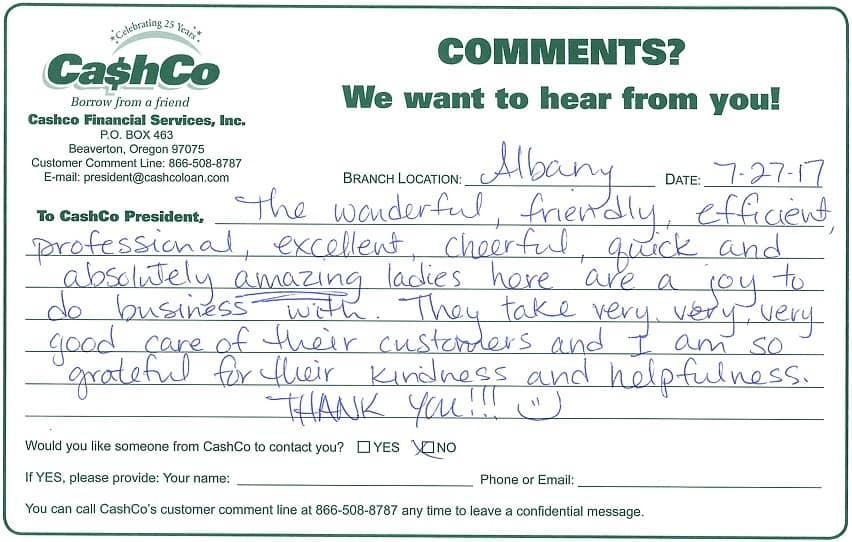 Celebrating 25 Years
Ca$hCo
Borrow from a friend
Cashco Financial Services, Inc.
P.O. BOX 463
Beaverton, Oregon 97075
Customer Comment Line: 866-508-8787
E-mail: president@cashcoloan.com
COMMENTS?
We want to hear from you!
BRANCH LOCATION: Albany DATE: 7-27-17
To CashCo President, The wonderful, friendly, efficient,
professional, excellent, cheerful, quick and
absolutely amazing ladies here are a joy to
do business with. They take very, very, very
good care of their customers and I am so
grateful for their kindness and helpfulness.
THANK YOU!!!
Would you like someone from CashCo to contact you? YES NO
If YES, please provide: Your name: Phone or Email:
You can call CashCo's customer comment line at 866-508-8787 any time to leave a confidential message.